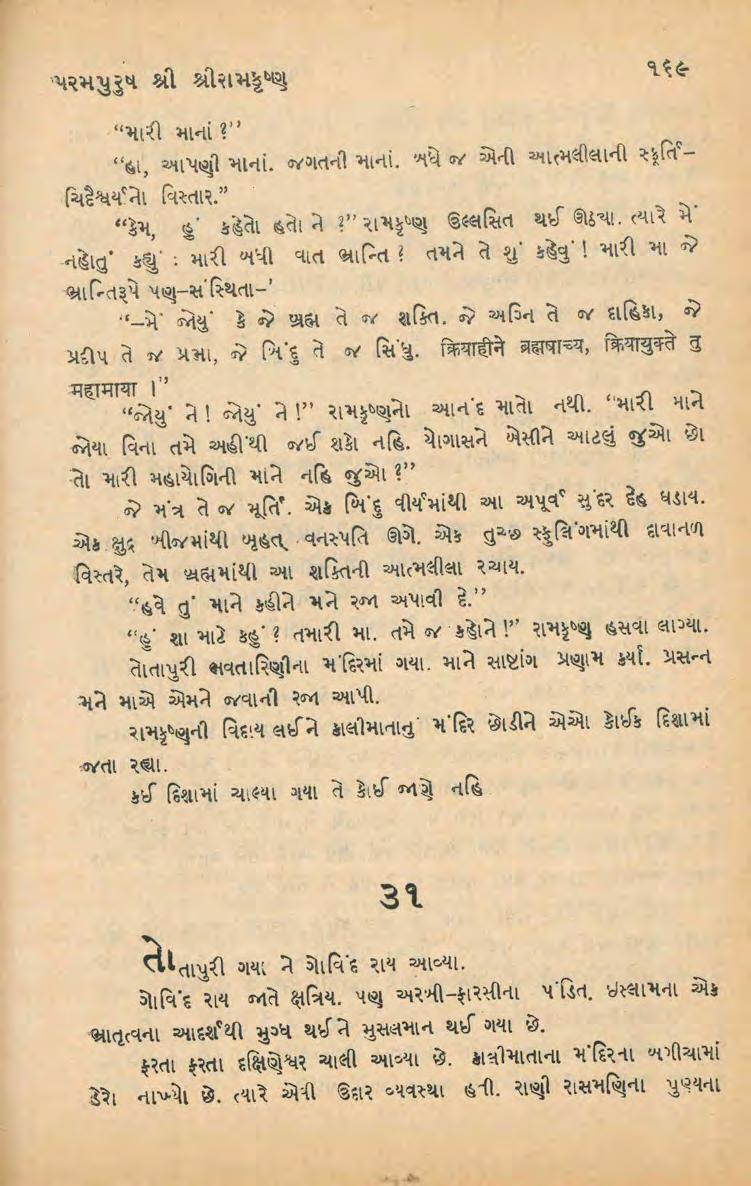 પરમપુરુષ શ્રી શ્રીરામકૃષ્ણ
૧૬૯
“મારી માનાં ?”
“હા, આપણી માનાં. જગતની માનાં. બધે જ એની આત્મલીલાની સ્ફૂર્તિ–
ચિદૈશ્વર્યનો વિસ્તાર.”
“કેમ, હું કહેતો હતો ને ?” રામકૃષ્ણ ઉલ્લસિત થઈ ઊઠ્યા. ત્યારે મેં
નહોતું કહ્યું : મારી બધી વાત ભ્રાન્તિ ? તમને તે શું કહેવું ! મારી મા જે
ભ્રાન્તિરૂપે પણ–સંસ્થિતા–’
“–મેં જોયું કે જે બ્રહ્મ તે જ શક્તિ. જે અગ્નિ તે જ દાહિકા, જે
પ્રદીપ તે જ પ્રભા, જે બિંદુ તે જ સિંધુ. क्रियाहीने ब्रह्मवाच्य, क्रियायुक्ते तु
महामाया ।”
“જોયું ને ! જોયું ને !” રામકૃષ્ણનો આનંદ માતો નથી. “મારી માને
જોયા વિના તમે અહીંથી જઈ શકો નહિ. યોગાસને બેસીને આટલું જુઓ છો
તો મારી મહાયોગિની માને નહિ જુઓ ?”
જે મંત્ર તે જ મૂર્તિ. એક બિંદુ વીર્યમાંથી આ અપૂર્વ સુંદર દેહ ઘડાય.
એક ક્ષુદ્ર બીજમાંથી બૃહત્ વનસ્પતિ ઊગે. એક તુચ્છ સ્ફુલિંગમાંથી દાવાનળ
વિસ્તરે, તેમ બ્રહ્મમાંથી આ શક્તિની આત્મલીલા રચાય.
“હવે તું માને કહીને મને રજા અપાવી દે.”
“હું શા માટે કહું ? તમારી મા. તમે જ કહોને !” રામકૃષ્ણ હસવા લાગ્યા.
તોતાપુરી ભવતારિણીના મંદિરમાં ગયા. માને સાષ્ટાંગ પ્રણામ કર્યા. પ્રસન્ન
મને માએ એમને જવાની રજા આપી.
રામકૃષ્ણની વિદાય લઈને કાલીમાતાનું મંદિર છોડીને એઓ કોઈક દિશામાં
જતા રહ્યા.
કઈ દિશામાં ચાલ્યા ગયા તે કોઈ જાણે નહિ
૩૧
તોતાપુરી ગયા ને ગોવિંદ રાય આવ્યા.
ગોવિંદ રાય જાતે ક્ષત્રિય. પણ અરબી–ફારસીના પંડિત. ઇસ્લામના એક
ભ્રાતૃત્વના આદર્શથી મુગ્ધ થઈને મુસલમાન થઈ ગયા છે.
ફરતા ફરતા દક્ષિણેશ્વર ચાલી આવ્યા છે. કાલીમાતાના મંદિરના બગીચામાં
ડેરો નાખ્યો છે. ત્યારે એવી ઉદાર વ્યવસ્થા હતી. રાણી રાસમણિના પુણ્યના